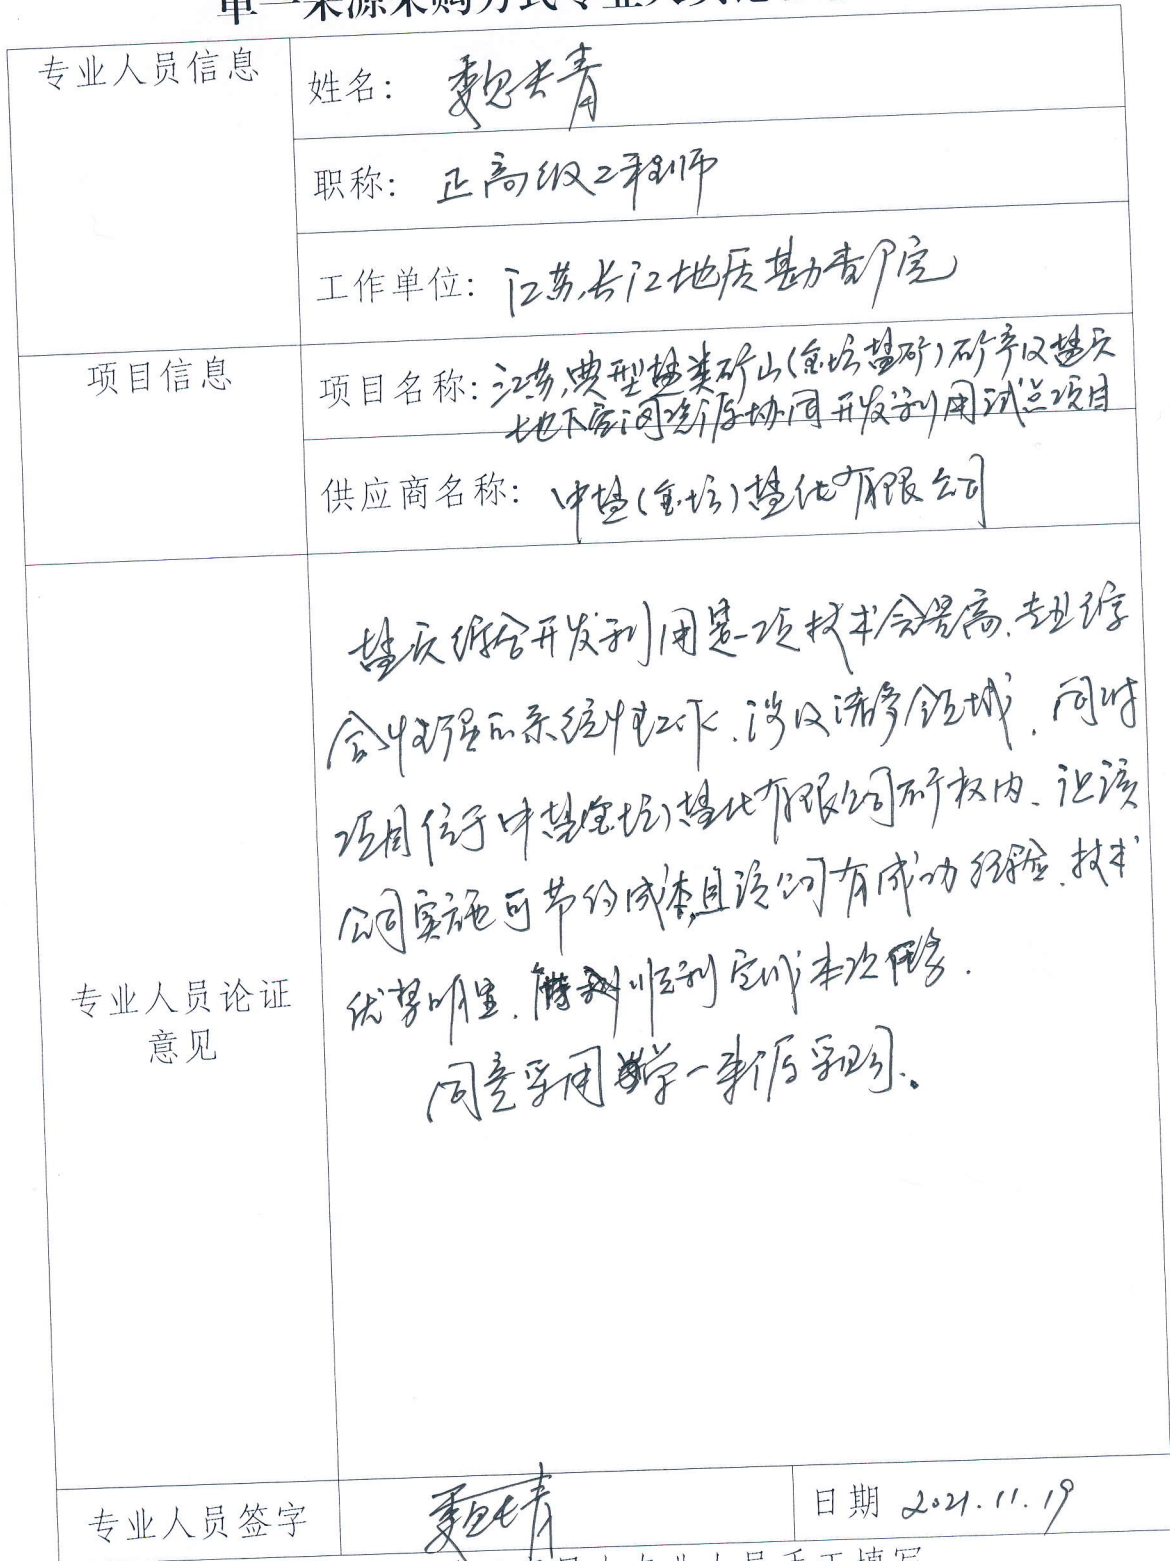 单一来源采购方式专业人员论证
专业人员信息
姓名： 魏长青
职称： 正高级工程师
工作单位： 江苏长江地质勘查院
项目信息
项目名称： 江苏典型盐类矿山（金坛盐矿）矿产及盐穴
地下空间资源协同开发利用试点项目
供应商名称： 中盐（金坛）盐化有限公司
专业人员论证
意见
盐穴综合开发利用是一项技术含量高、专业综
合性强的系统性工作、涉及诸多领域、同时
项目位于中盐（金坛）盐化有限公司矿权内、让该
公司实施可节约成本，且该公司有成功经验、技术
优势明显、顺利完成本次任务.
同意采用单一来源采购。
专业人员签字
魏长青
日期 2021.11.19
专业人员手工填写